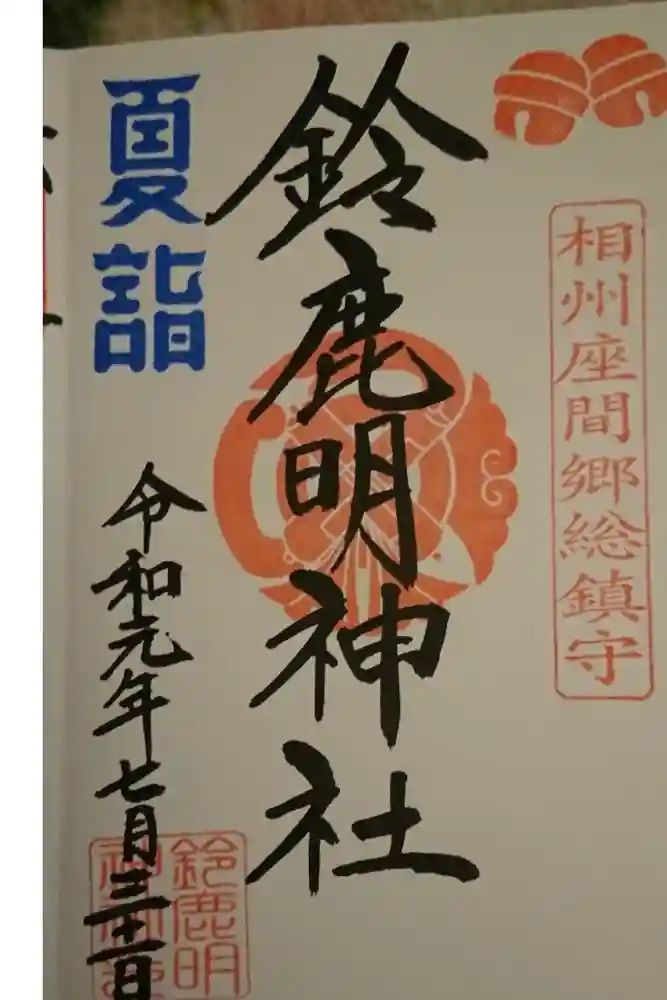 相州座間郷総鎮守
鈴鹿明神社
夏詣
令和元年七月三十一日
鈴鹿明